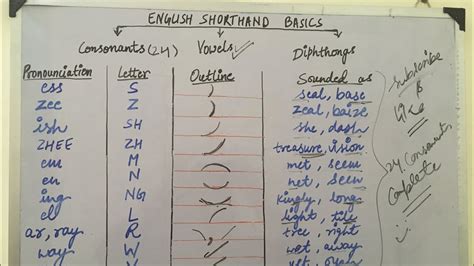 ENGLISH SHORTHAND BASICS
Consonants (24) Vowels Diphthongs
Pronounciation Letter Outline Sounded as
ess S seal, base
zee Z zeal, baize
ish SH she, dash
ZHEE ZH treasure, vision
em M met, seem
en N net, seen
ing NG Kingly, long
el L light, tile
ar, ray R tree, right
way W wet, away
yet
Subscribe
&
Like
24 Consonants
Complete